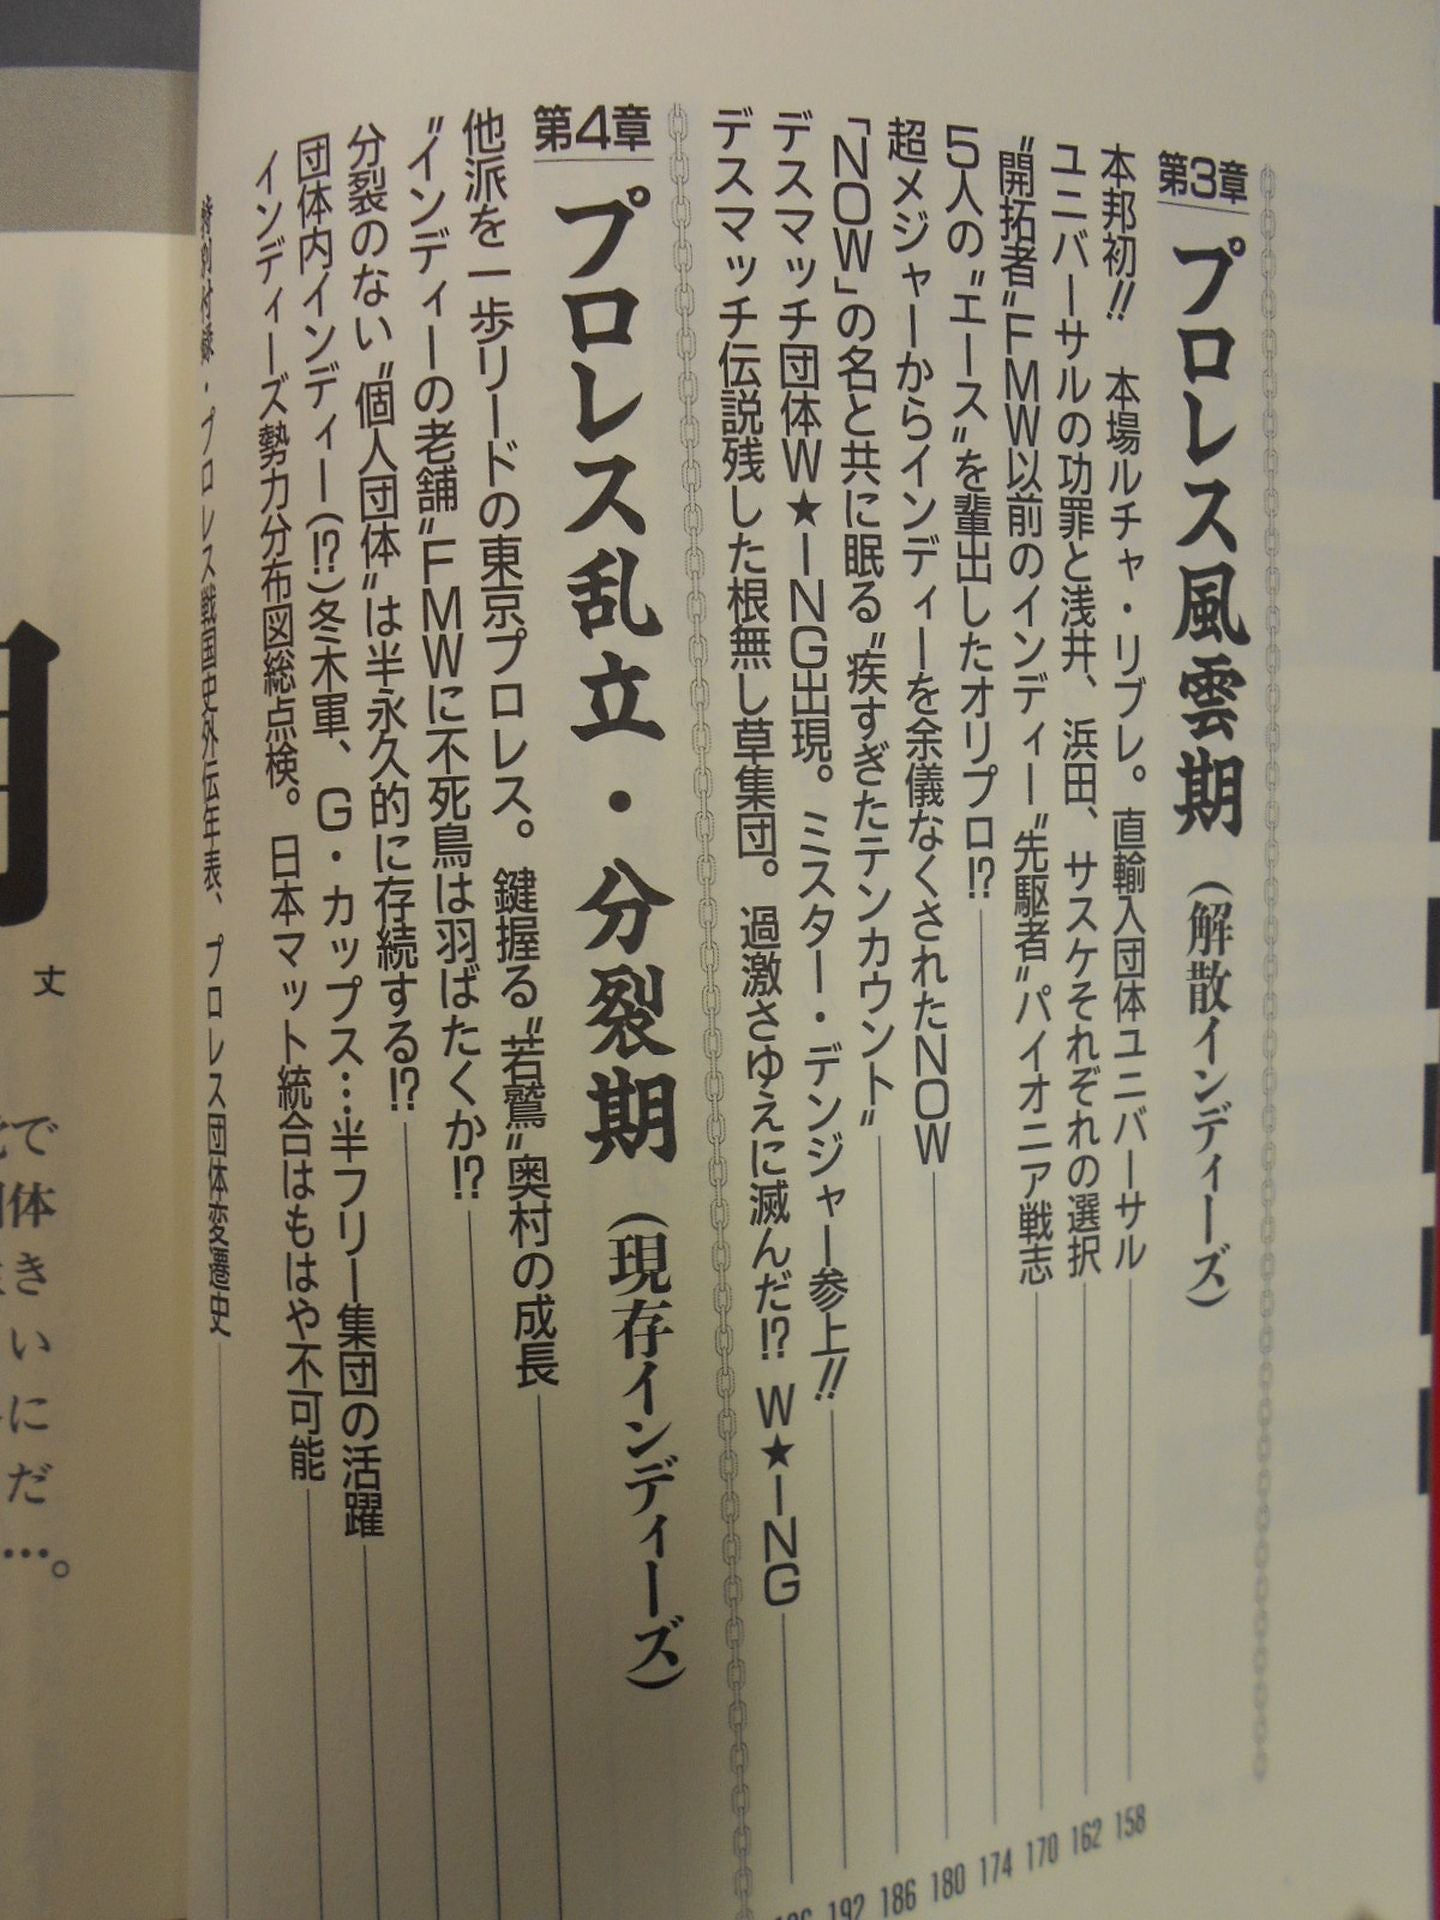 第3章 プロレス風雲期(解散インディーズ)
本邦初!! 本場ルチャ・リブレ。直輸入団体ユニバーサル 158
ユニバーサルの功罪と浅井、浜田、サスケそれぞれの選択 162
〝開拓者〟FMW以前のインディー〝先駆者〟パイオニア戦志 170
5人の〝エース〟を輩出したオリプロ!? 174
超メジャーからインディーを余儀なくされたNOW 180
「NOW」の名と共に眠る〝疾すぎたテンカウント〟 186
デスマッチ団体W★ING出現。ミスター・デンジャー参上!! 192
デスマッチ伝説残した根無し草集団。過激さゆえに滅んだ!? W★ING
第4章 プロレス乱立・分裂期(現存インディーズ)
他派を一歩リードの東京プロレス。鍵握る〝若鷲〟奥村の成長
〝インディーの老舗〟FMWに不死鳥は羽ばたくか!?
分裂のない〝個人団体〟は半永久的に存続する!?
団体内インディー(!?)冬木軍、G・カップス…半フリー集団の活躍
インディーズ勢力分布図総点検。日本マット統合はもはや不可能
特別付録・プロレス戦国史外伝年表、プロレス団体変遷史
丈
で
体
き
い
に
だ
…。